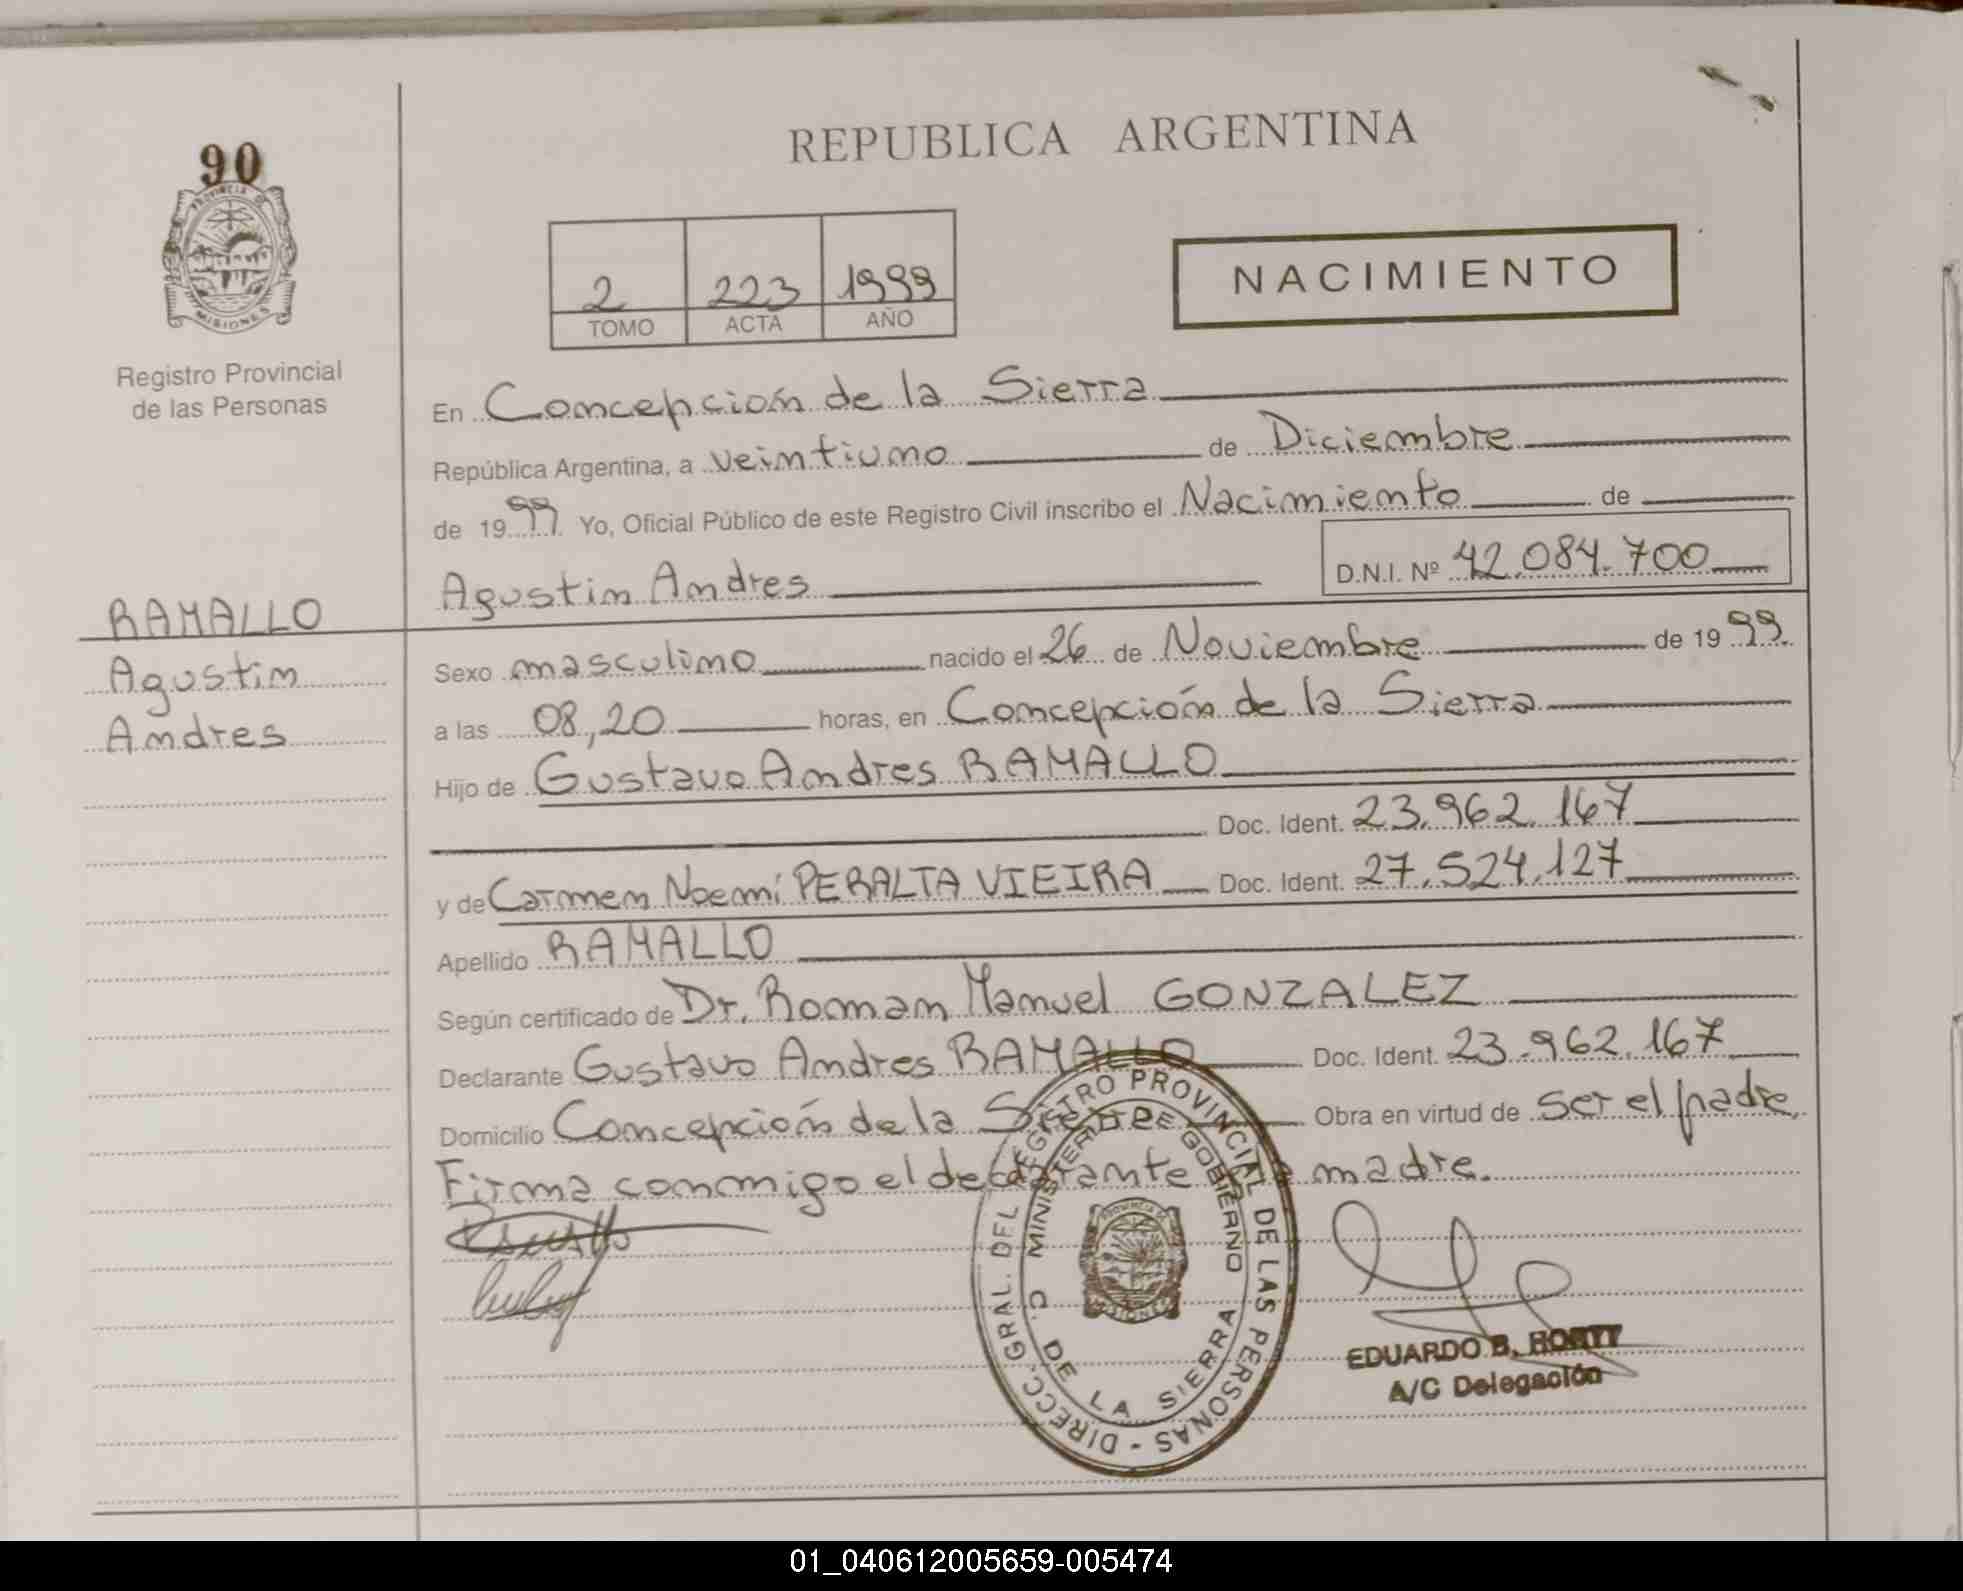 90
PROVINCIA DE
MISIONES
Registro Provincial
de las Personas
RAMALLO
Agustin
Andres
REPUBLICA ARGENTINA
2 223 1999
TOMO ACTA AÑO
NACIMIENTO
En Concepción de la Sierra
República Argentina, a veintiuno de Diciembre
de 1999 Yo, Oficial Público de este Registro Civil inscribo el Nacimiento de
Agustin Andres D.N.I. Nº 42.084.700
Sexo masculino nacido el 26 de Noviembre de 1999
a las 08,20 horas, en Concepción de la Sierra
Hijo de Gustavo Andres RAMALLO
Doc. Ident. 23.962.167
y de Carmen Noemí PERALTA VIEIRA Doc. Ident. 27.524.127
Apellido RAMALLO
Según certificado de Dr. Roman Manuel GONZALEZ
Declarante Gustavo Andres RAMALLO Doc. Ident. 23.962.167
Domicilio Concepción de la Sierra Obra en virtud de ser el padre,
Firma conmigo el declarante la madre.
DIRECC. GRAL. DEL REGISTRO PROVINCIAL DE LAS PERSONAS -
MINISTERIO DE GOBIERNO
C. DE LA SIERRA
MISIONES
EDUARDO B.
A/C Delegación
01_040612005659-005474